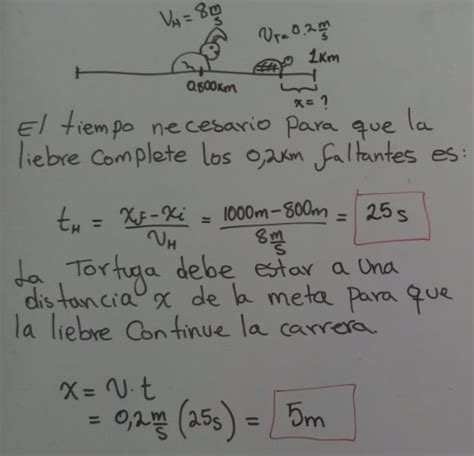 V_H = 8 m/s
V_T = 0.2 m/s
1Km
0.800Km
x = ?
El tiempo necesario para que la
liebre complete los 0,2Km faltantes es:
t_H = (x_f - x_i)/V_H = (1000m - 800m)/(8 m/s) = 25 s
La Tortuga debe estar a una
distancia x de la meta para que
la liebre Continue la carrera.
x = V · t
= 0,2 m/s (25s) = 5m